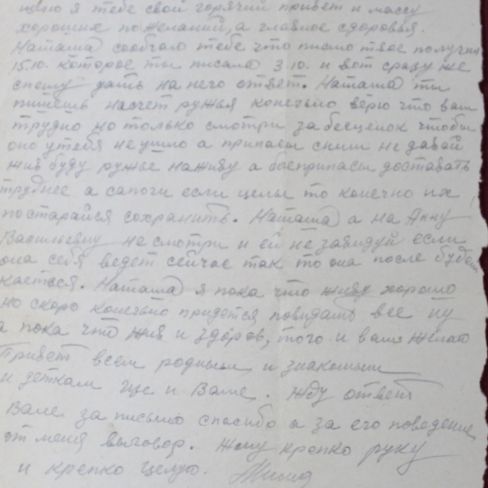 я тебе свой горячий привет и массу
хороших пожеланий, а главное здоровья.
Наташа сообчаю тебе что писмо твое получил
15.10. которое ты писала 3.10. и вот сразу же
спешу дать на него ответ. Наташа ты
пишешь насчет ружья конечьно верю что вам
трудно но только смотри за бесценок чтобы
оно у тебя не ушло а припасы с ним не давай
жив буду ружье наживу а боеприпасы доставать
труднее а сапоги если целы то конечно их
постарайся сохранить. Наташа а на Анну
Васильевну не смотри и ей не завидуй если
она себя ведет сейчас так то она после будет
каеться. Наташа я пока что живу хорошо
но скоро конечьно придется повидать все ну
а пока что жив и здоров, того и вам желаю
Привет всем родным и знакомым
и деткам и Вале. Жду ответ
Вале за письмо спасибо а за его поведение
от меня выговор. Жму крепко руку
и крепко целую. Миша